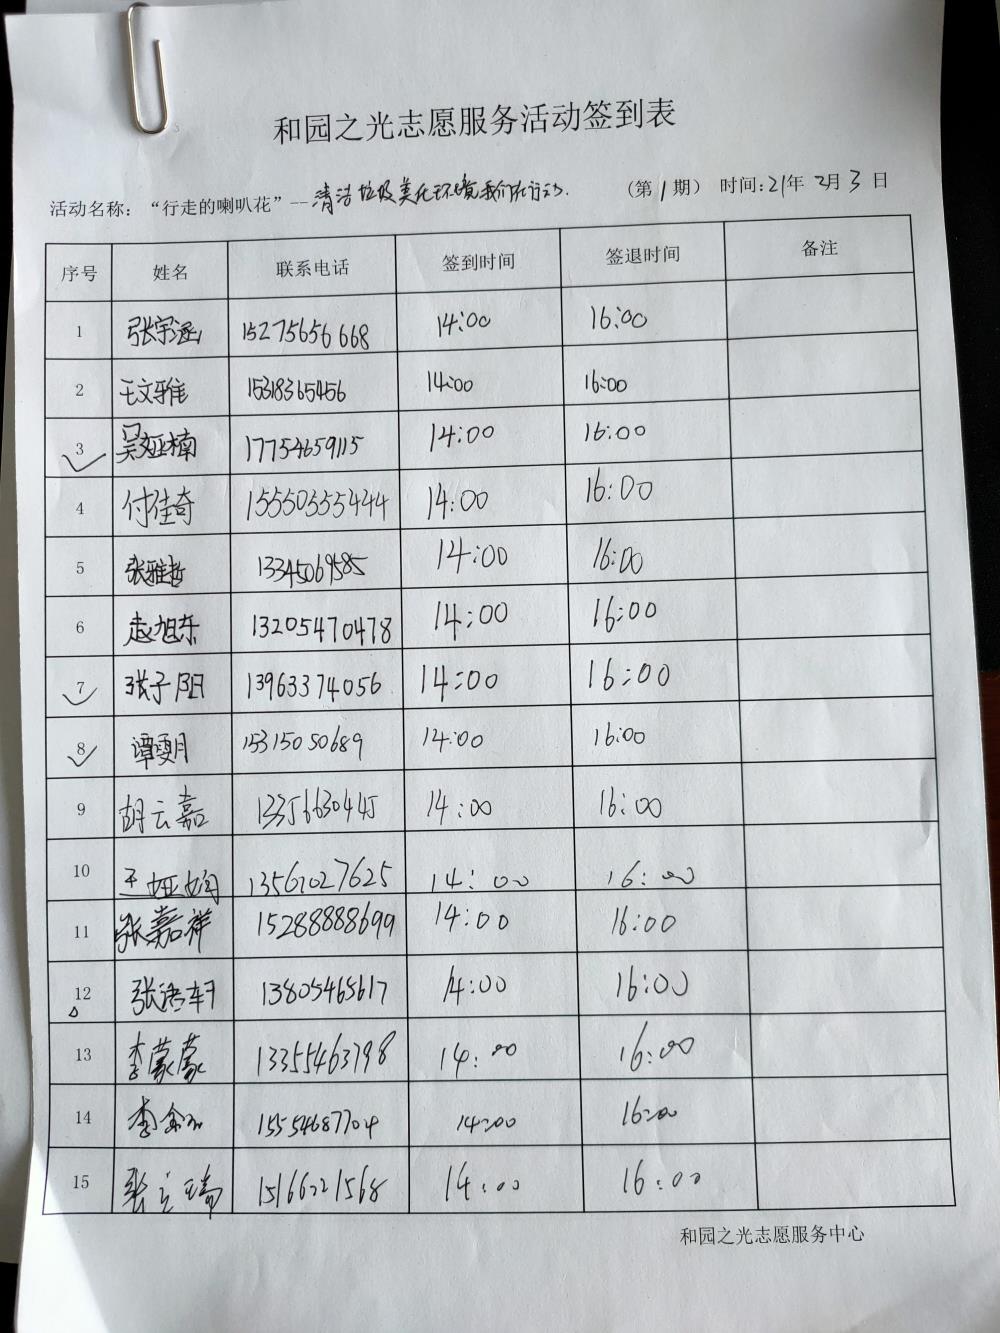 和园之光志愿服务活动签到表
活动名称：“行走的喇叭花”--清洁垃圾美化环境我们在行动. （第1期） 时间:21年 2月 3日
序号 姓名 联系电话 签到时间 签退时间 备注
1 张宇涵 15275656668 14:00 16:00
2 王文雅 15318365456 14:00 16:00
3 吴亚楠 17754659115 14:00 16:00
4 付佳奇 15550555444 14:00 16:00
5 张雅哲 13345069585 14:00 16:00
6 赵旭东 13205470478 14:00 16:00
7 张子阳 13963374056 14:00 16:00
8 谭雯月 15315050689 14:00 16:00
9 胡云嘉 13356630445 14:00 16:00
10 王娅娴 13561027625 14:00 16:00
11 张嘉祥 15288888699 14:00 16:00
12 张浩轩 13805465617 14:00 16:00
13 李蒙蒙 13355463798 14:00 16:00
14 李 15554687704 14:00 16:00
15 张立瑞 15166221568 14:00 16:00
和园之光志愿服务中心